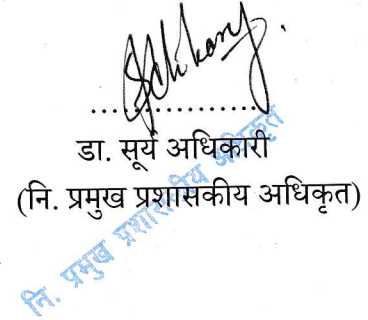 ....................
डा. सूर्य अधिकारी
(नि. प्रमुख प्रशासकीय अधिकृत)
नि. प्रमुख प्रशासकीय अधिकृत